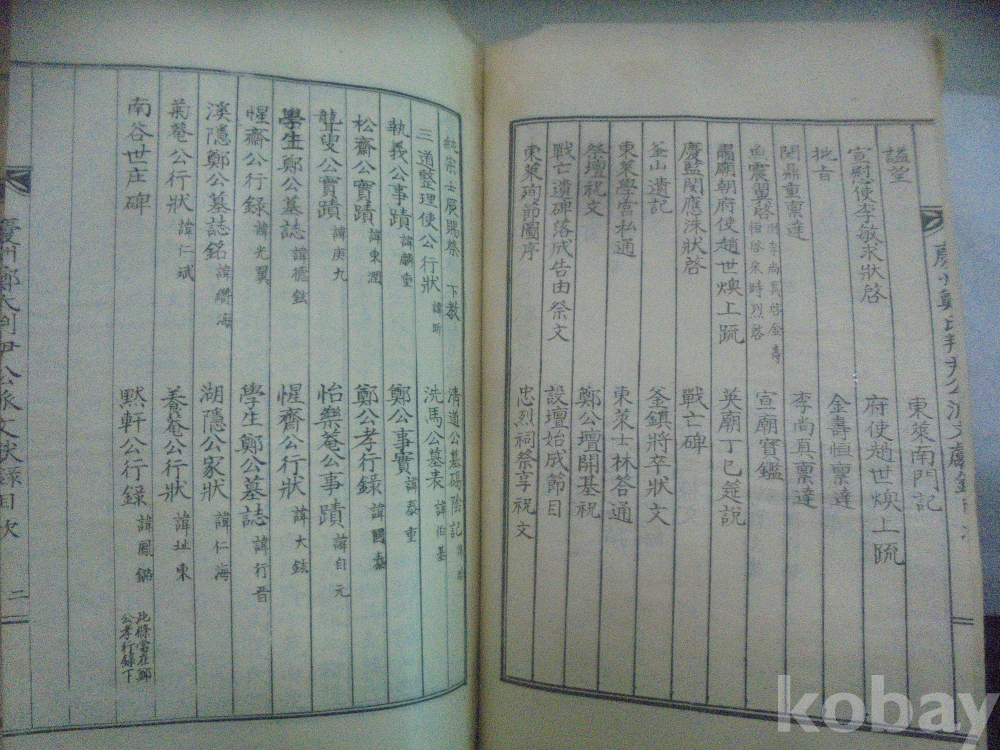 諡望
東萊南門記
宣慰使李敏求狀啓
府使趙世煥上疏
批旨
金壽恒稟達
閔鼎重稟達
李尙眞稟達
魚震翼啓 李尙眞啓 金壽恒啓 宋時烈啓
宣廟寶鑑
肅廟朝府使趙世煥上疏
英廟丁巳筵說
慶監閔應洙狀啓
戰亡碑
釜山遺記
釜鎭將卒狀文
東萊學宮私通
東萊士林答通
祭壇祝文
鄭公壇開基祝
戰亡遺碑落成告由祭文
設壇始成節目
東萊殉節圖序
忠烈祠祭享祝文
純宗壬辰賜祭 下敎
淸道公墓碣陰記
三道整理使公行狀 諱昕
洗馬公墓表 諱伯基
執義公事蹟 諱麟重
鄭公事實 諱泰重
松齋公實蹟 諱東潤
鄭公孝行錄 諱國泰
聾叟公實蹟 諱庚九
怡樂菴公事蹟 諱自元
學生鄭公墓誌 諱德鉉
惺齋公行狀 諱大鉉
惺齋公行錄 諱光翼
學生鄭公墓誌 諱行晋
溪隱鄭公墓誌銘 諱纘海
湖隱公家狀 諱仁海
菊菴公行狀 諱仁斌
養菴公行狀 諱址東
南谷世庄碑
默軒公行錄 諱鳳鏘 此條當在鄭公孝行錄下
慶州鄭氏判尹公派文獻錄目次 二
kobay